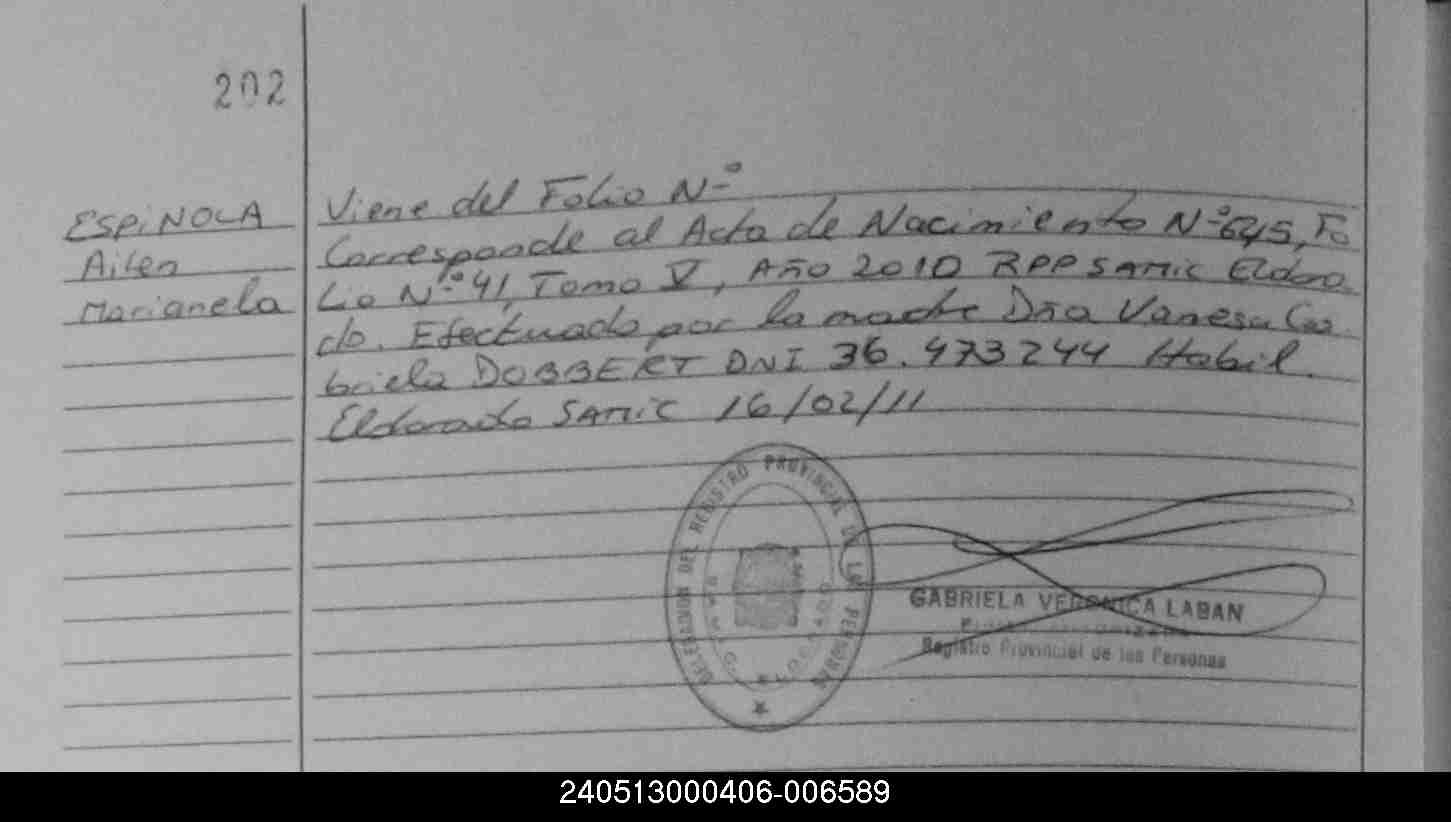 202
ESPINOLA
Ailen
Marianela
Viene del Folio Nº
Corresponde al Acta de Nacimiento Nº 645, Fo
lio Nº 41, Tomo V, Año 2010 RPP SAMIC Eldora
do. Efectuado por la madre Dña Vanesa Ga
briela DOBBERT DNI 36.473244 Habil.
Eldorado SAMIC 16/02/11
DELEGACION DEL REGISTRO PROVINCIAL DE LAS PERSONAS
GABRIELA VERONICA LABAN
Registro Provincial de las Personas
240513000406-006589